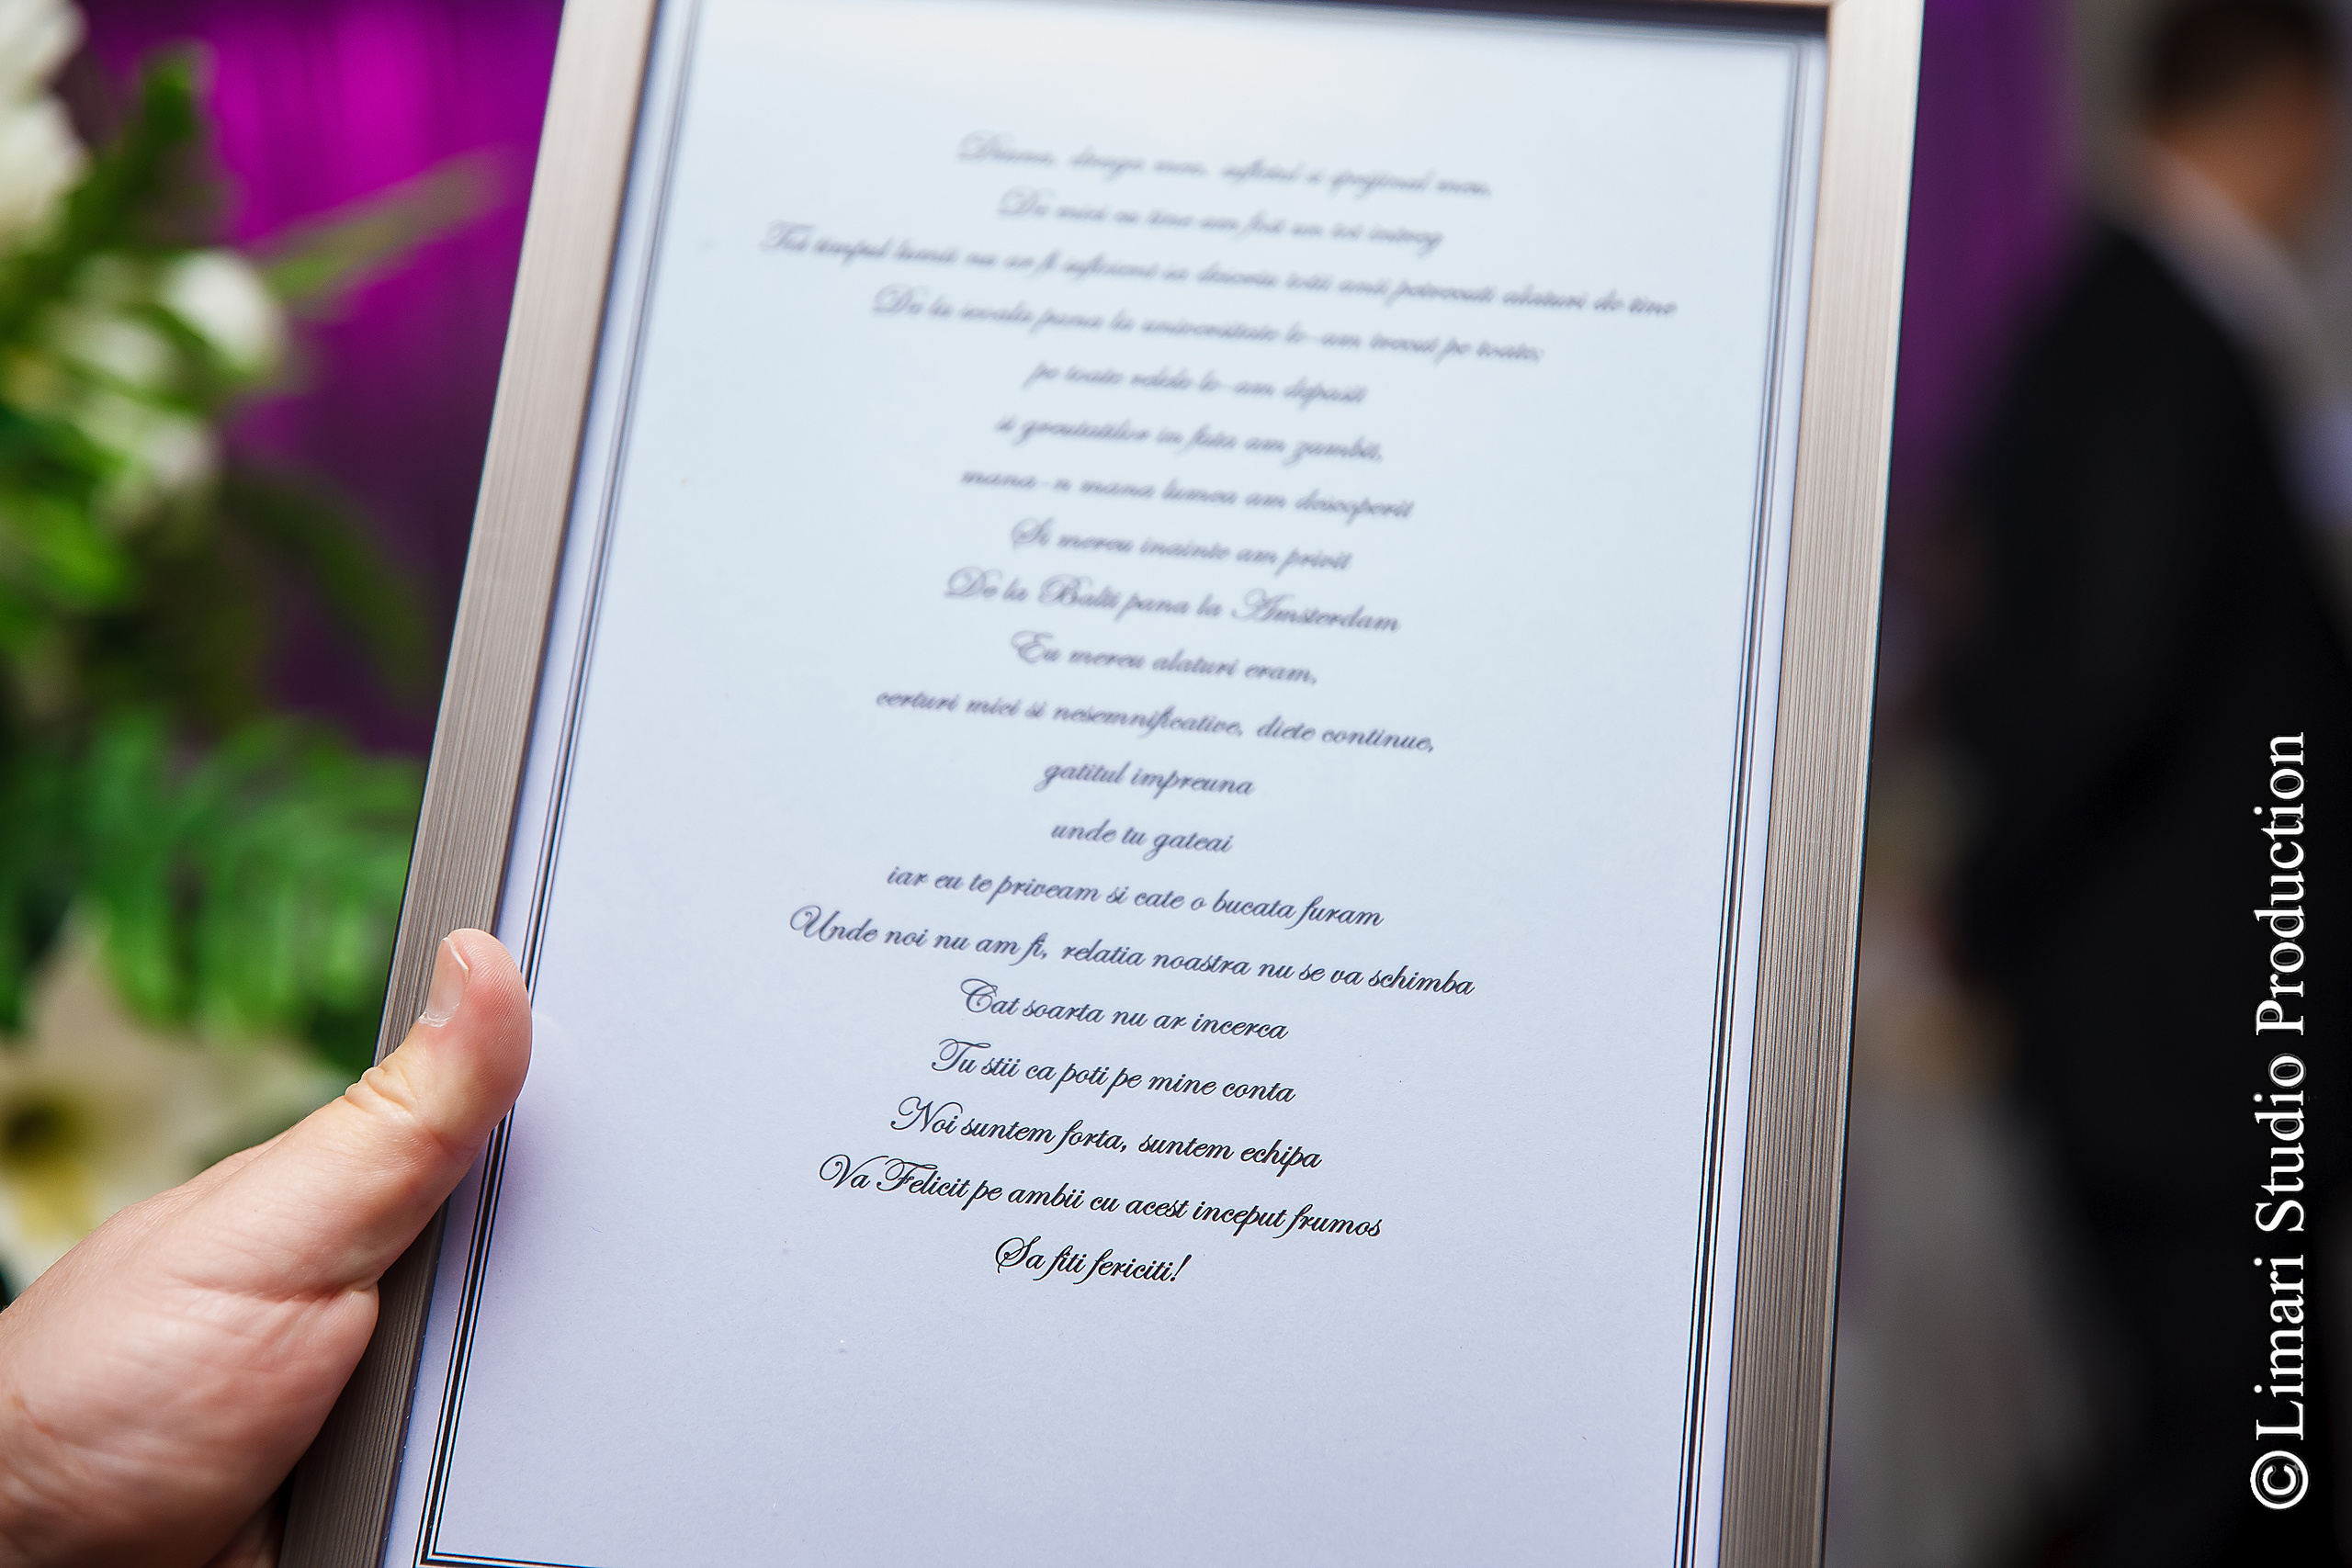 Diana, draga mea, sufletul si sprijinul meu,
De mici cu tine am fost un tot intreg
Tot timpul lumii nu ar fi suficient sa descriu toti anii petrecuti alaturi de tine
De la scoala pana la universitate le-am trecut pe toate;
pe toate relele le-am depasit
si greutatilor in fata am zambit,
mana-n mana lumea am descoperit
Si mereu inainte am privit
De la Balti pana la Amsterdam
Eu mereu alaturi eram,
certuri mici si nesemnificative, diete continue,
gatitul impreuna
unde tu gateai
iar eu te priveam si cate o bucata furam
Unde noi nu am fi, relatia noastra nu se va schimba
Cat soarta nu ar incerca
Tu stii ca poti pe mine conta
Noi suntem forta, suntem echipa
Va Felicit pe ambii cu acest inceput frumos
Sa fiti fericiti!
© Limari Studio Production